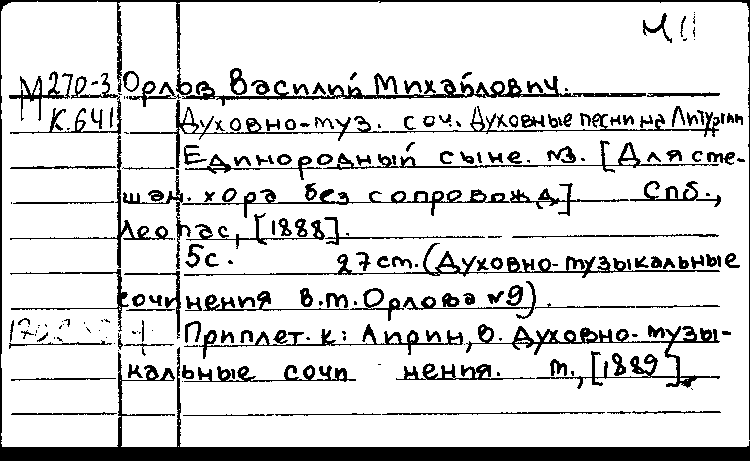 М 11
М 270-3 Орлов, Василий Михайлович.
К.641 Духовно-муз. соч. Духовные песни на Литургии
Единородный сыне. №3. [Для сме-
шан. хора без сопровожд.] Спб.,
Леопас, [1888].
5с. 27 cm. (Духовно-музыкальные
сочинения В.М.Орлова №9).
Приплет. к: Лирин, В. Духовно-музы-
кальные сочинения. М., [1889].